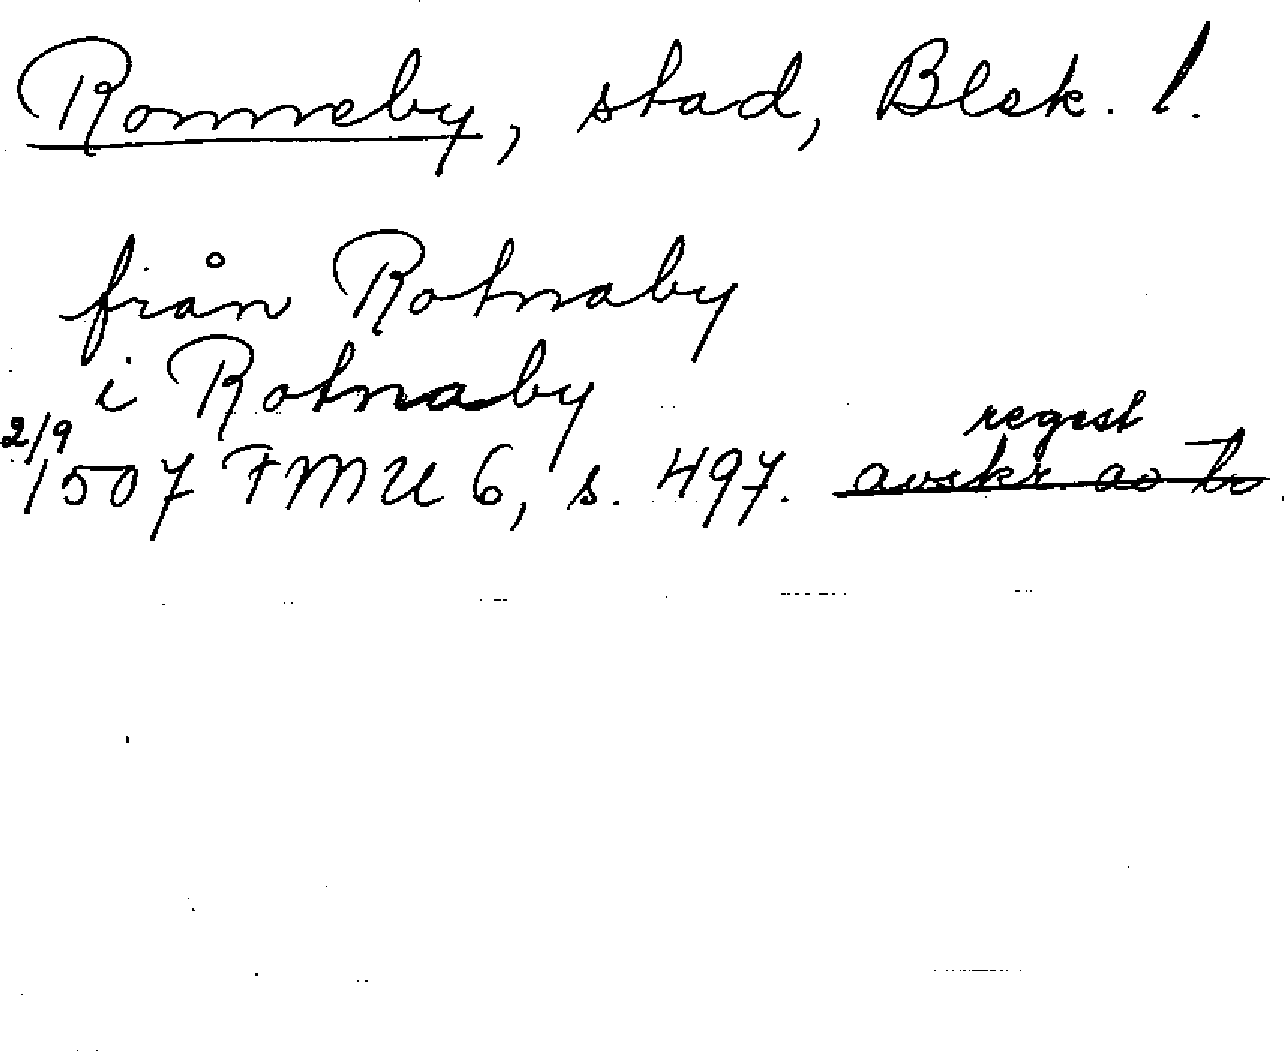 Ronneby, stad, Blek. l.
från Rotnaby
i Rotnaby
2/9
1507 FMU 6, s. 497. regest
avskr. ao